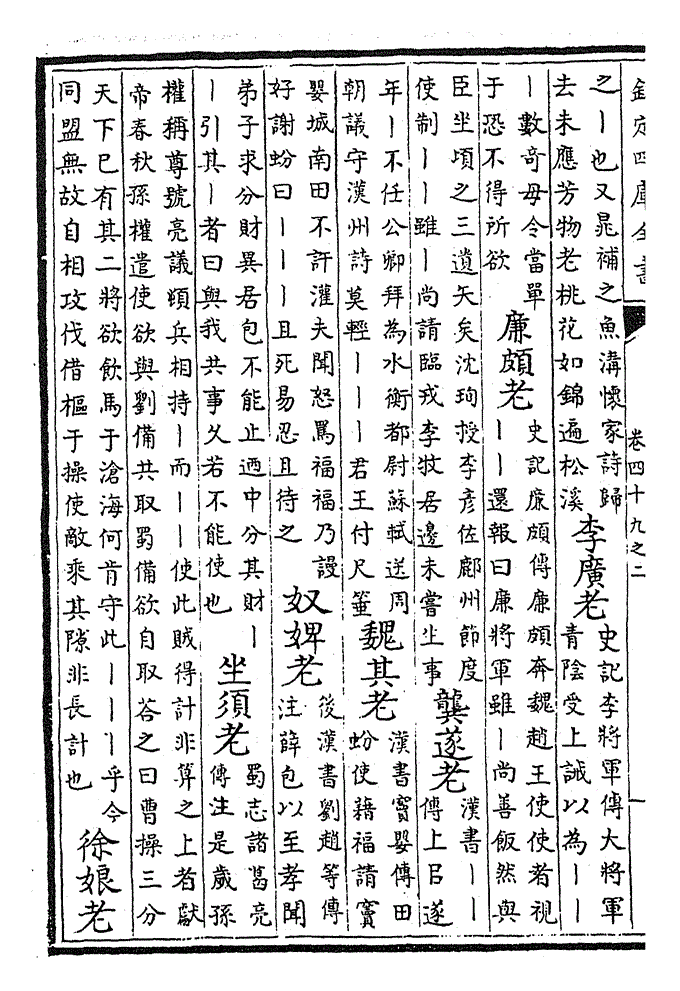 欽定四庫全書 卷四十九之二 一
之丨也又晁補之魚溝懷家詩歸
去未應芳物老桃花如錦遍松溪
李廣老
史記李將軍傳大將軍
青陰受上誡以為丨丨
丨數奇毋令當單
于恐不得所欲
廉頗老
史記廉頗傳廉頗奔魏趙王使使者視
丨丨還報曰廉將軍雖丨尚善飯然與
臣坐頃之三遺矢矣沈珣授李彥佐鄜州節度
使制丨丨雖丨尚請臨戎李牧居邊未嘗生事
龔遂老
漢書丨丨
傳上召遂
年丨不任公卿拜為水衡都尉蘇軾送周
朝議守漢州詩莫輕丨丨丨君王付尺箠
魏其老
漢書竇嬰傳田
蚡使藉福請竇
嬰城南田不許灌夫聞怒罵福福乃謾
好謝蚡曰丨丨丨且死易忍且待之
奴婢老
後漢書劉趙等傳
注薛包以至孝聞
弟子求分財異居包不能止迺中分其財丨
丨引其丨者曰與我共事久若不能使也
坐須老
蜀志諸葛亮
傳注是歲孫
權稱尊號亮議頃兵相持丨而丨丨使此賊得計非算之上者獻
帝春秋孫權遣使欲與劉備共取蜀備欲自取荅之曰曹操三分
天下已有其二將欲飲馬于滄海何肯守此丨丨丨乎今
同盟無故自相攻伐借樞于操使敵乘其隙非長計也
徐娘老